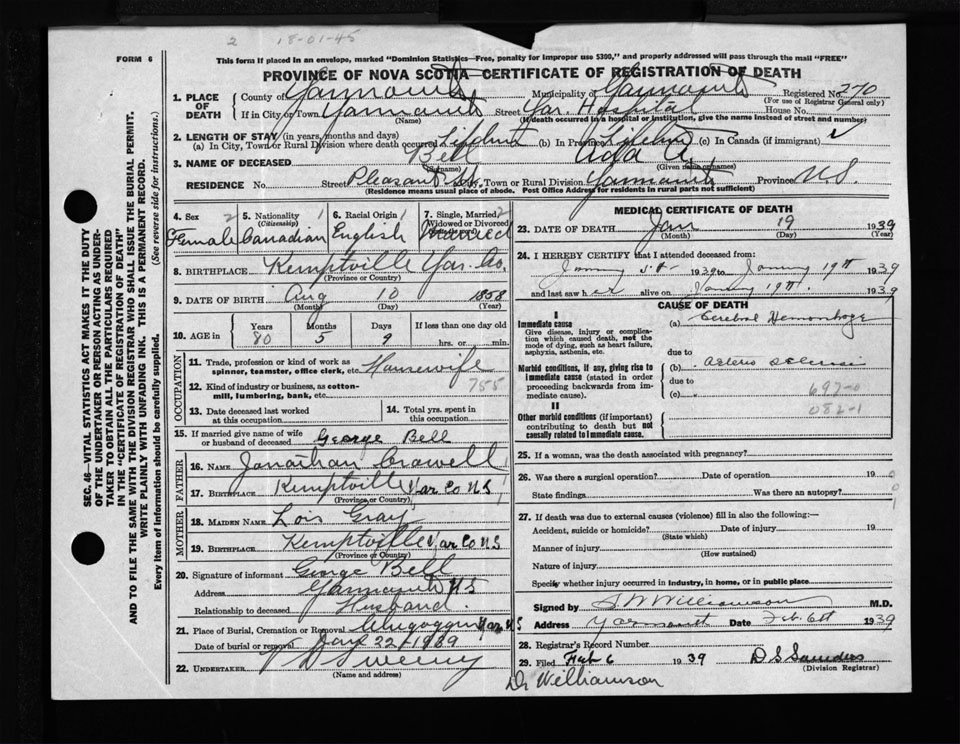 2 18-01-45
FORM 6
This form if placed in an envelope, marked "Dominion Statistics—Free, penalty for improper use $300," and properly addressed will pass through the mail "FREE"
PROVINCE OF NOVA SCOTIA—CERTIFICATE OF REGISTRATION OF DEATH
1. PLACE OF DEATH
County of Yarmouth Municipality of Yarmouth Registered No. 270
(For use of Registrar General only)
If in City or Town Yarmouth Street Yar. Hospital House No.
(Name) (If death occurred in a hospital or institution, give the name instead of street and number)
2. LENGTH OF STAY (in years, months and days)
(a) In City, Town or Rural Division where death occurred Lifetime (b) In Province Lifetime (c) In Canada (if immigrant) ✓
3. NAME OF DECEASED Bell Ada A.
(Surname) (Given name or names)
RESIDENCE No. Street Pleasant St. City, Town or Rural Division Yarmouth Province N.S
(Residence means usual place of abode. Post Office Address for residents in rural parts not sufficient)
4. Sex 2 Female
5. Nationality (Citizenship) 1 Canadian
6. Racial Origin 1 English
7. Single, Married, Widowed or Divorced 2 Married
8. BIRTHPLACE Kemptville Yar. Co.
(Province or Country)
9. DATE OF BIRTH Aug 10 1858
(Month) (Day) (Year)
10. AGE in Years 80 Months 5 Days 9 If less than one day old hrs. or min.
OCCUPATION
11. Trade, profession or kind of work as spinner, teamster, office clerk, etc. Housewife
12. Kind of industry or business, as cotton-mill, lumbering, bank, etc. 755
13. Date deceased last worked at this occupation
14. Total yrs. spent in this occupation
15. If married give name of wife or husband of deceased George Bell
FATHER
16. NAME Jonathan Crowell
17. BIRTHPLACE Kemptville Yar Co N S
(Province or Country)
MOTHER
18. MAIDEN NAME Lois Gray
19. BIRTHPLACE Kemptville Yar Co N S
(Province or Country)
20. Signature of informant George Bell
Address Yarmouth N S
Relationship to deceased Husband.
21. Place of Burial, Cremation or Removal Chegoggin Yar N S
Date of burial or removal Jan 22/1939
22. UNDERTAKER Sweeny
(Name and address)
MEDICAL CERTIFICATE OF DEATH
23. DATE OF DEATH Jan 19 1939
(Month) (Day) (Year)
24. I HEREBY CERTIFY that I attended deceased from:
January 5th 1939 to January 19th 1939
and last saw her alive on January 19th. 1939
CAUSE OF DEATH
I
Immediate cause (a) Cerebral Hemorrhage
Give disease, injury or complication which caused death, not the mode of dying, such as heart failure, asphyxia, asthenia, etc.
due to
Morbid conditions, if any, giving rise to immediate cause (stated in order proceeding backwards from immediate cause).
(b) Arterio sclerosis
due to
(c) 697-0
082-1
II
Other morbid conditions (if important) contributing to death but not causally related to immediate cause.
25. If a woman, was the death associated with pregnancy?
26. Was there a surgical operation? Date of operation 19
State findings Was there an autopsy?
27. If death was due to external causes (violence) fill in also the following:—
Accident, suicide or homicide? Date of injury 19
(State which)
Manner of injury
(How sustained)
Nature of injury
Specify whether injury occurred in industry, in home, or in public place
Signed by S W Williamson M.D.
Address Yarmouth Date Feb. 6th 1939
28. Registrar's Record Number
29. Filed Feb 6 1939 D S Saunders
(Division Registrar)
Dr Williamson
SEC. 46—VITAL STATISTICS ACT MAKES IT THE DUTY
OF THE UNDERTAKER OR PERSON ACTING AS UNDER-
TAKER TO OBTAIN ALL THE PARTICULARS REQUIRED
IN THE "CERTIFICATE OF REGISTRATION OF DEATH"
AND TO FILE THE SAME WITH THE DIVISION REGISTRAR WHO SHALL ISSUE THE BURIAL PERMIT.
WRITE PLAINLY WITH UNFADING INK. THIS IS A PERMANENT RECORD.
Every item of Information should be carefully supplied. (See reverse side for instructions.)